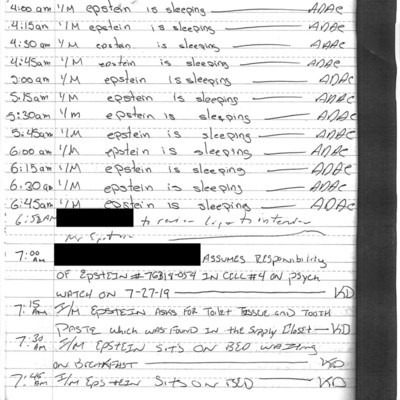 4:00am I/M epstein is sleeping ADAC
4:15am I/M epstein is sleeping ADAC
4:30am I/M epstein is sleeping ADAC
4:45am I/M epstein is sleeping ADAC
5:00am I/M epstein is sleeping ADAC
5:15am I/M epstein is sleeping ADAC
5:30am I/M epstein is sleeping ADAC
5:45am I/M epstein is sleeping ADAC
6:00am I/M epstein is sleeping ADAC
6:15am I/M epstein is sleeping ADAC
6:30am I/M epstein is sleeping ADAC
6:45am I/M epstein is sleeping ADAC
6:58AM to
Mr Epstein
7:00 AM ASSUMES RESPONSIBILITY
OF EPSTEIN #76318-054 IN CELL #4 ON PSYCH
WATCH ON 7-27-19 KD
7:15 AM I/M EPSTEIN ASKS FOR Toilet TISSUE AND TOOTH
PASTE which was FOUND IN the Supply Closet KD
7:30 AM I/M EPSTEIN SITS ON BED WAITING
ON BREAKFAST KD
7:45 AM I/M EPSTEIN SITS ON BED KD